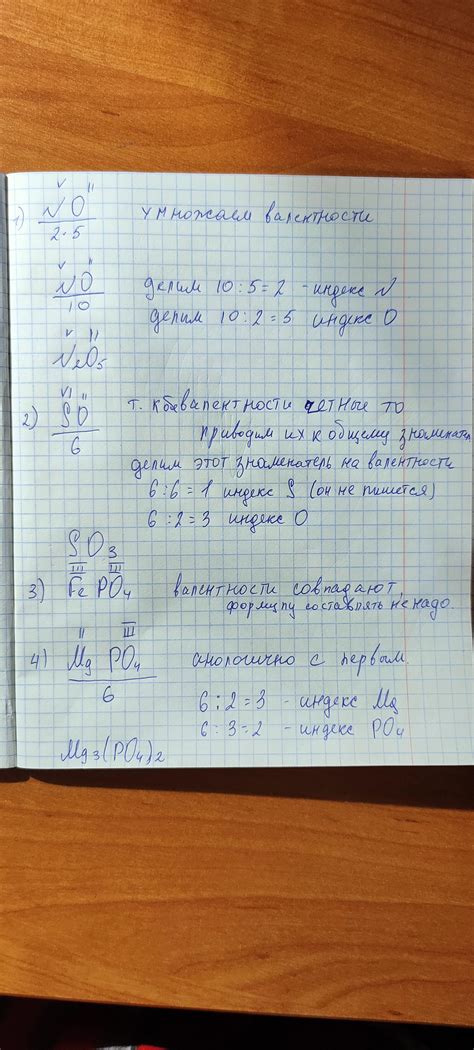 V II
1) NO умножаем валентности
2·5
V II
NO делим 10:5=2 -индекс N
10 делим 10:2=5 индекс O
V II
N2O5
VI II
2) SO т. к обе валентности четные то
6 приводим их к общему знаменател
делим этот знаменатель на валентности
6:6=1 индекс S (он не пишется)
6:2=3 индекс O
SO3
III III
3) Fe PO4 валентности совпадают,
формулу составлять не надо.
II III
4) Mg PO4 анологично с первым.
6 6:2=3 - индекс Mg
6:3=2 - индекс PO4
Mg3(PO4)2